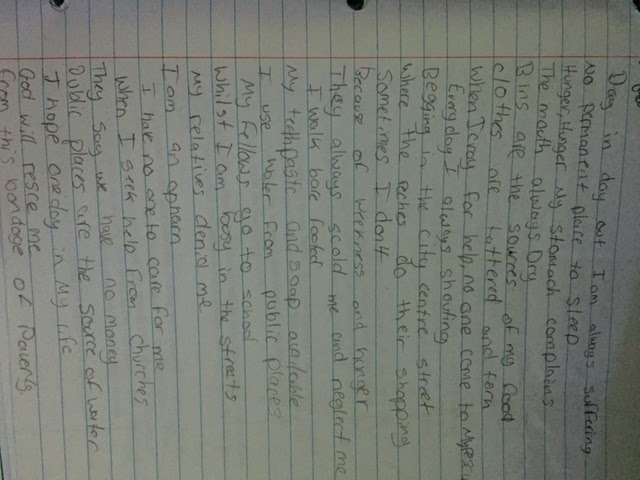 Day in day out I am always suffering
No permanent place to sleep
Hunger, Hunger My stomach complains
The mouth always Dry
Bins are the sources of my food
clothes are tattered and torn
When I cray for help, no one come to My
Everyday I always shouting
Begging in the city centre street
where the reches do their shopping
Sometimes I don't
Because of weekness and hunger
They always scold me and neglect me
I walk bare footed
My teethpaste and soap available
I use water from public places
My fellows go to school
Whilst I am busy in the streets
My relatives denid me
I am an ophorn
I have no one to care for me
When I seek help from churches
They say we have no money
Public places are the source of water
I hope one day in My life
God will resce me
From this bondage of Poverty.